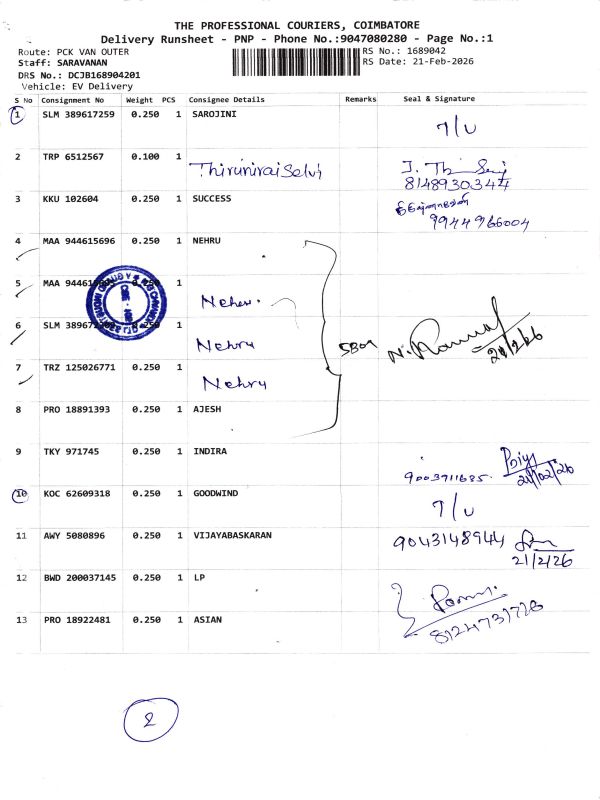 THE PROFESSIONAL COURIERS, COIMBATORE
Delivery Runsheet - PNP - Phone No.:9047080280 - Page No.:1
Route: PCK VAN OUTER RS No.: 1689042
Staff: SARAVANAN RS Date: 21-Feb-2026
DRS No.: DCJB168904201
Vehicle: EV Delivery
S No Consignment No Weight PCS Consignee Details Remarks Seal & Signature
1 SLM 389617259 0.250 1 SAROJINI 7/U
2 TRP 6512567 0.100 1 Thirunirai Selvi
8148930344
3 KKU 102604 0.250 1 SUCCESS
9944966004
4 MAA 944615696 0.250 1 NEHRU
5 MAA 1 Nehru
6 SLM 1 Nehru
7 TRZ 125026771 0.250 1 Nehru
21/2/26
8 PRO 18891393 0.250 1 AJESH
9 TKY 971745 0.250 1 INDIRA 9003911685 Priya
21/02/26
10 KOC 62609318 0.250 1 GOODWIND 7/U
11 AWY 5080896 0.250 1 VIJAYABASKARAN 9043148944
21/2/26
12 BWD 200037145 0.250 1 LP
13 PRO 18922481 0.250 1 ASIAN 8124731728
2